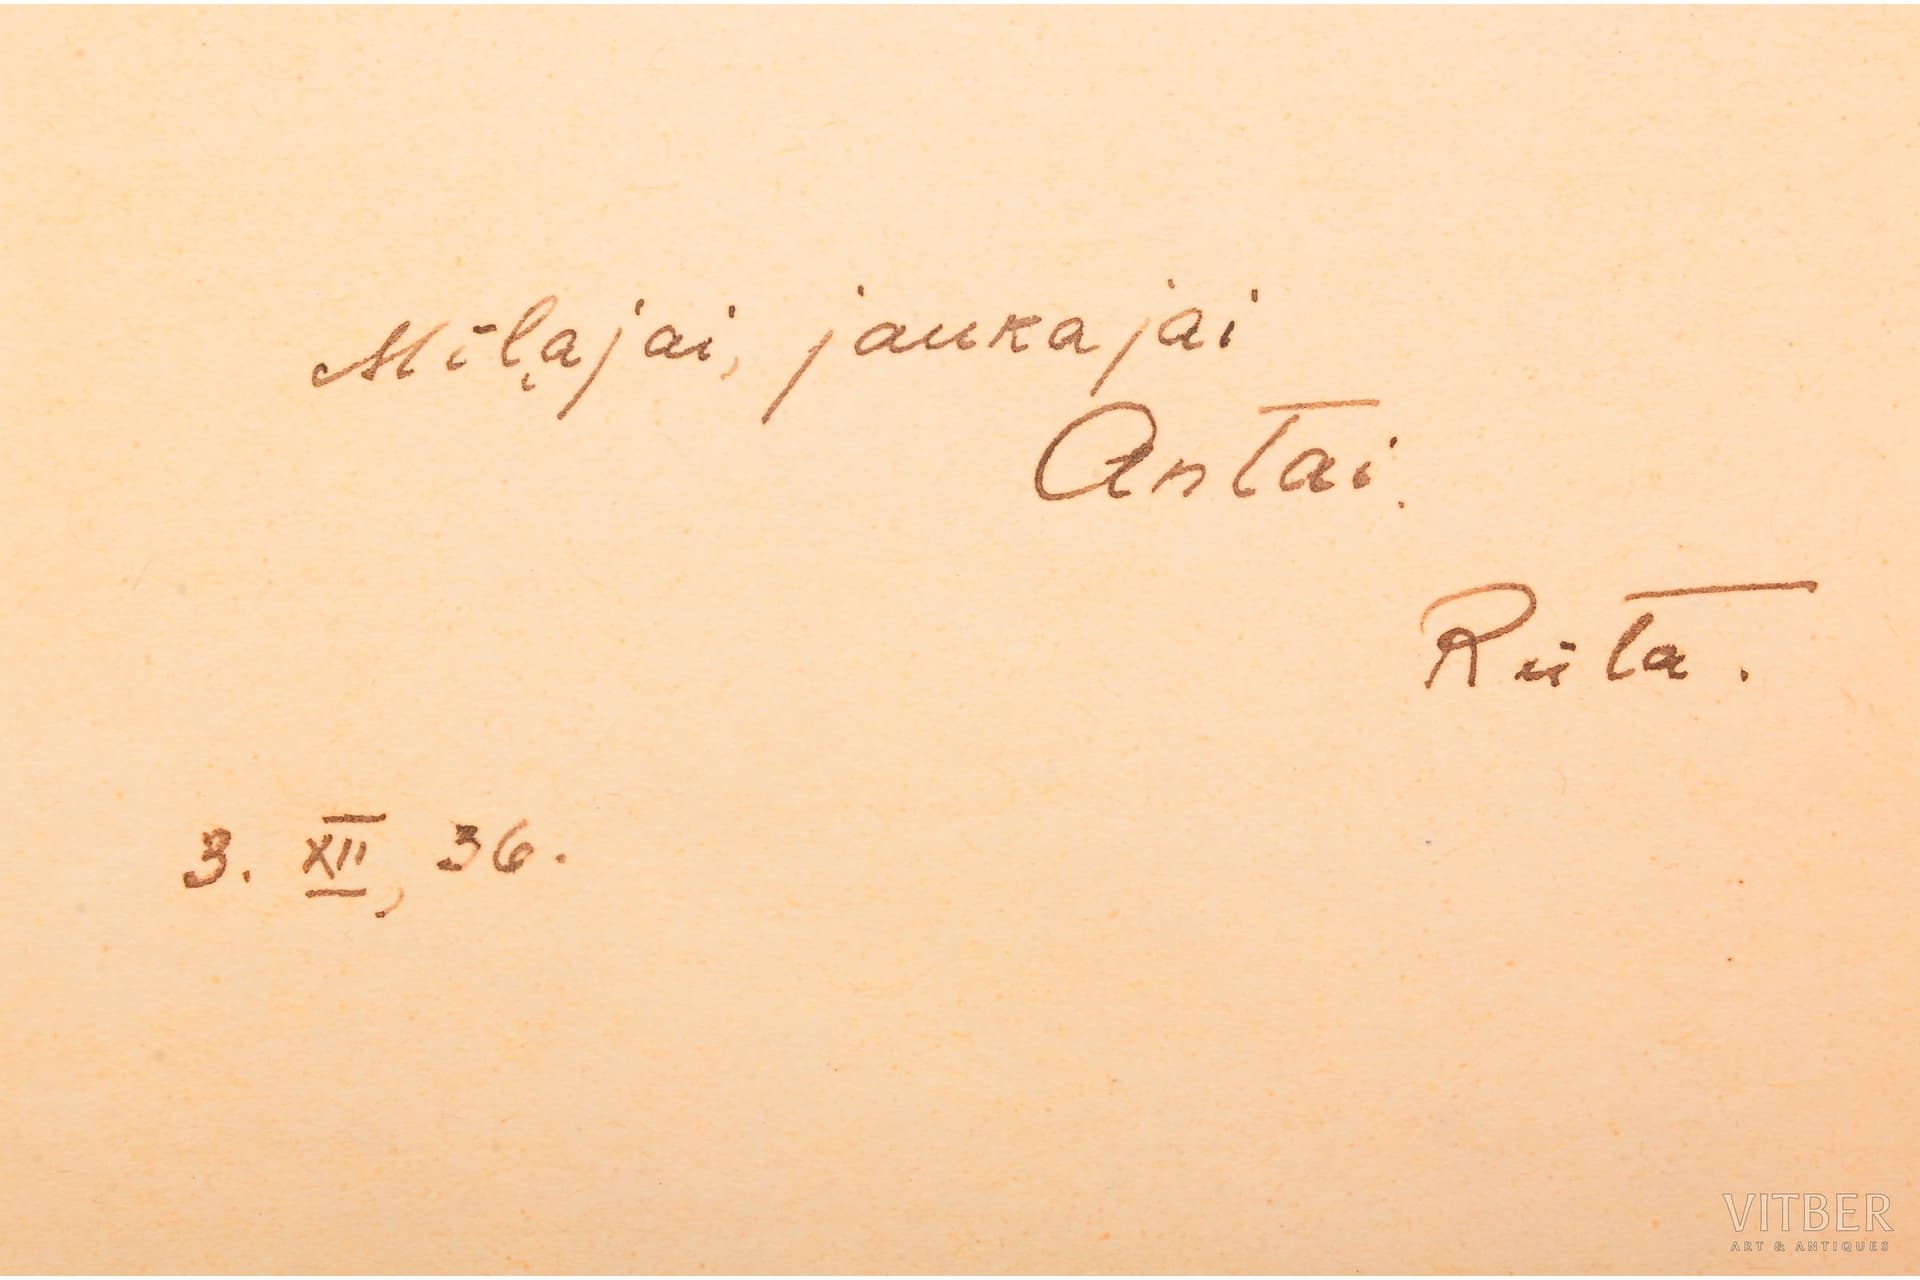 Mīļajai, jaukajai
Antai.
Rūta.
3. XII, 36.
VITBER
ART & ANTIQUES